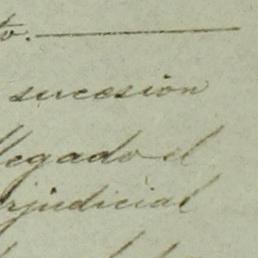 to.
sucesión
llegado el
rjudicial